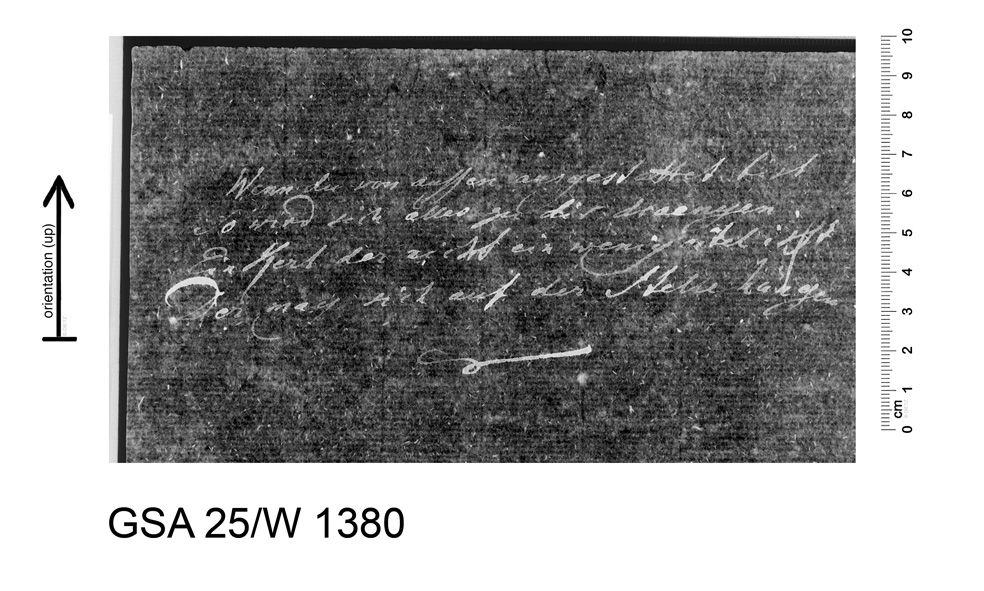 Wenn du von aussen ausgestattet bist
so wird sich alles zu dir draengen
Ein Kerl der nicht ein wenig eitel ist
Der mag sich auf der Stelle hängen
orientation (up)
10
9
8
7
6
5
4
3
2
1
0
cm
GSA 25/W 1380